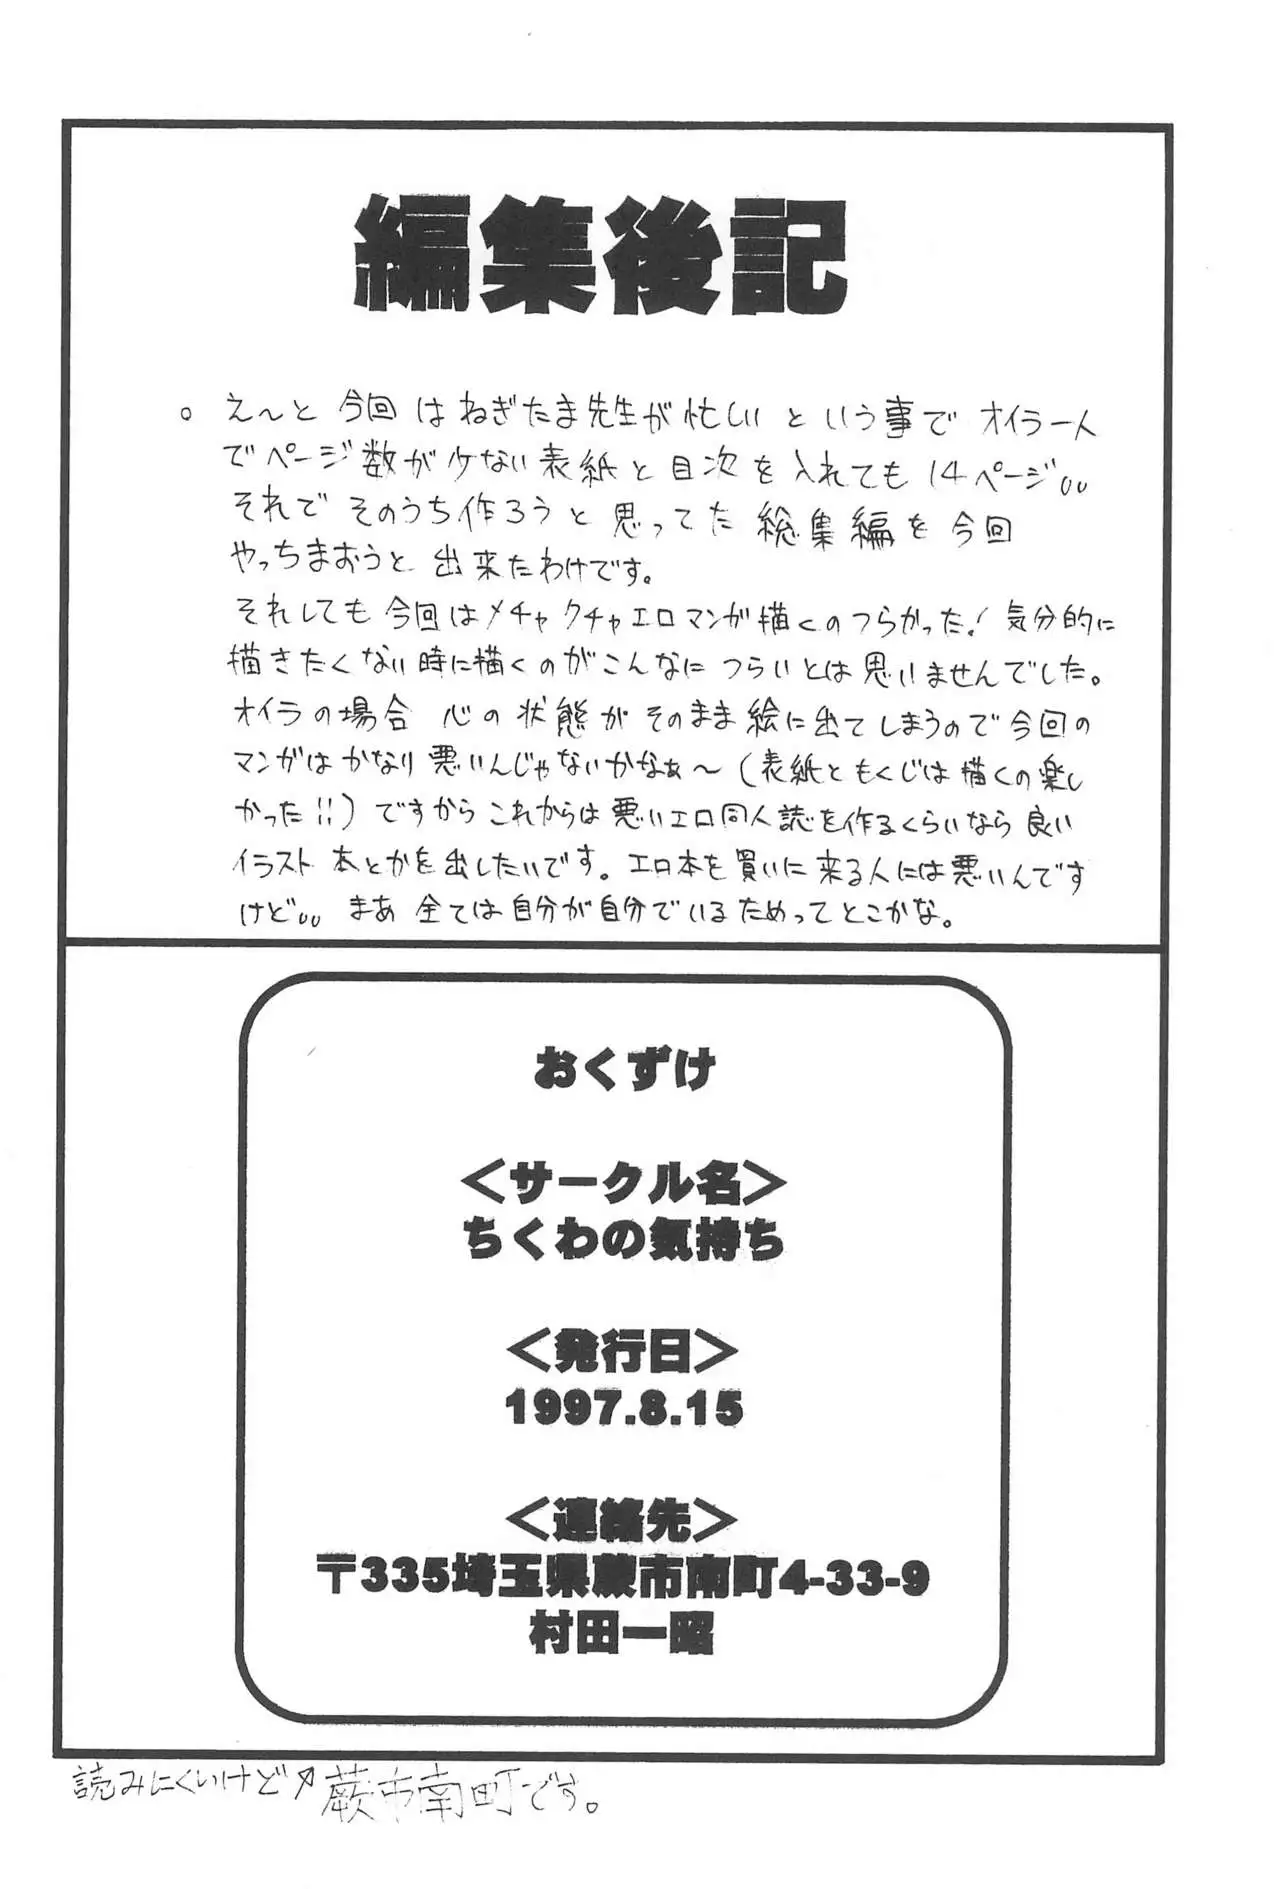 編集後記
。え～と 今回はねぎたま先生が忙しいという事でオイラ一人
でページ数が少ない表紙と目次を入れても14ページ。。
それでそのうち作ろうと思ってた総集編を今回
やっちまおうと出来たわけです。
それしても今回はメチャクチャエロマンガ描くのつらかった!気分的に
描きたくない時に描くのがこんなにつらいとは思いませんでした。
オイラの場合 心の状態がそのまま絵に出てしまうので今回の
マンガはかなり悪いんじゃないかなぁ～(表紙ともくじは描くの楽し
かった!!)ですからこれからは悪いエロ同人誌を作るくらいなら良い
イラスト本とかを出したいです。エロ本を買いに来る人には悪いんです
けど。。 まあ 全ては自分が自分でいるためってとこかな。
おくずけ
＜サークル名＞
ちくわの気持ち
＜発行日＞
1997.8.15
＜連絡先＞
〒335埼玉県蕨市南町4-33-9
村田一昭
読みにくいけど↗蕨市南町です。